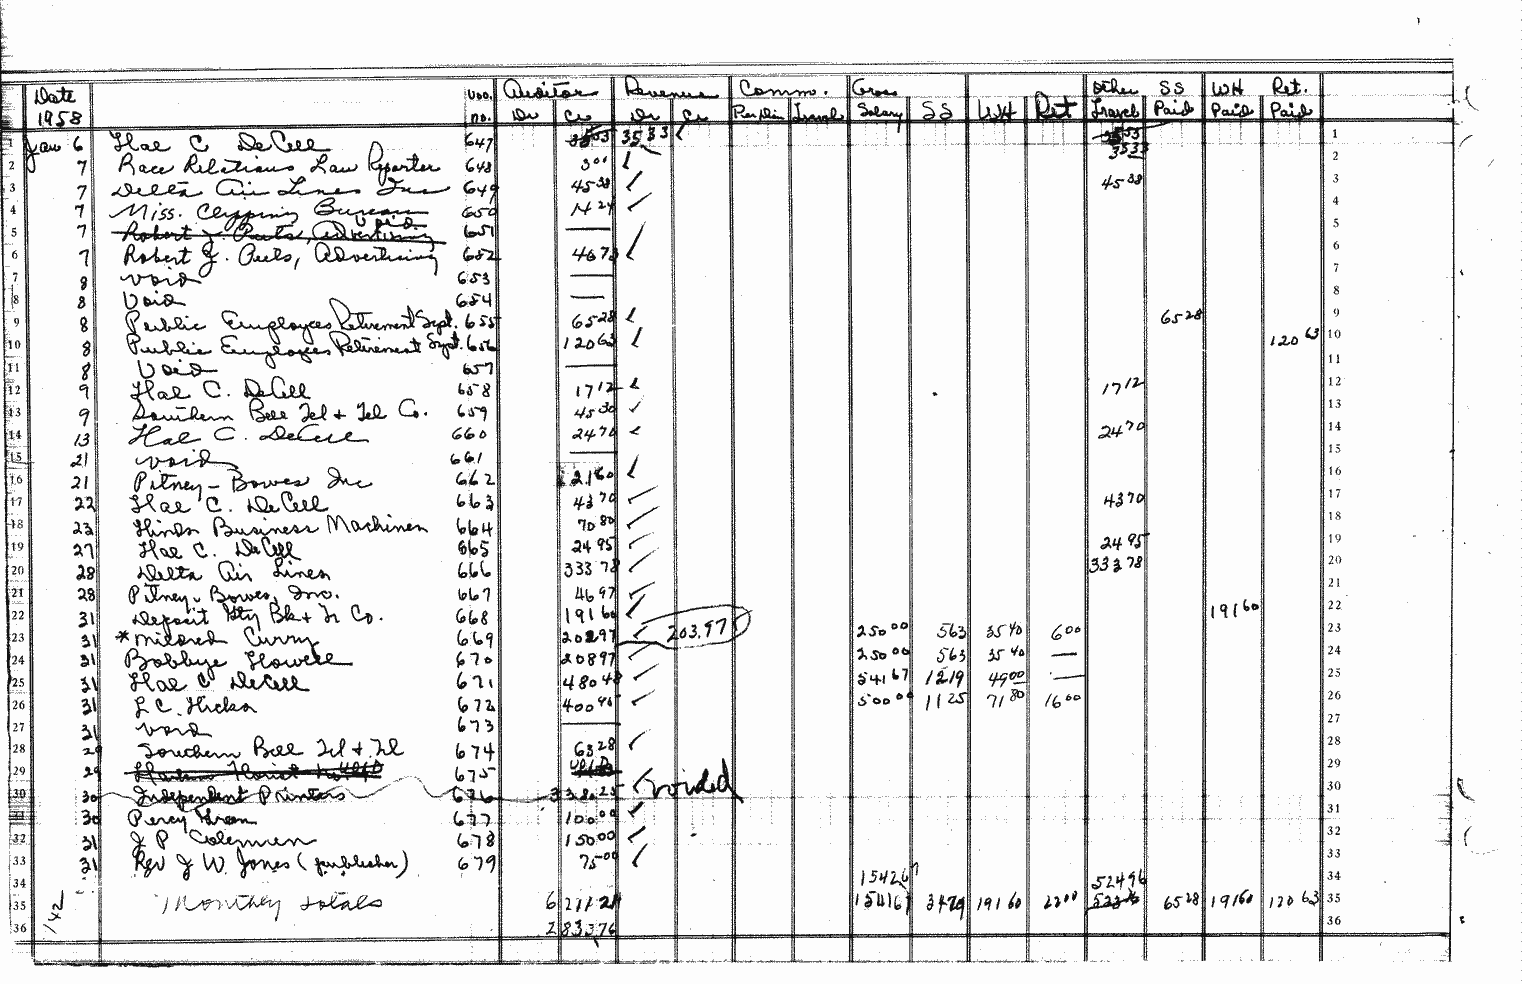 Date Voo. Auditor Revenue Comm. Gross Other SS WH Ret.
1958 no. Dr Cr Dr Cr Per Diem Travel Salary SS WH Ret Travel Paid Paid Paid
1 Jan 6 Hal C DeCell 647 3533 3533 1
2 7 Race Relations Law Reporter 648 3 00 3533 2
3 7 Delta Air Lines Inc 649 45 38 45 38 3
4 7 Miss. Clipping Bureau 650 14 24 4
5 7 Robert J. Advertising Void 651 — 5
6 7 Robert J. Advertising 652 46 73 6
7 8 void 653 — 7
8 8 Void 654 — 8
9 8 Public Employees Retirement Syst. 655 65 28 65 28 9
10 8 Public Employees Retirement Syst. 656 120 63 120 63 10
11 8 Void 657 — 11
12 9 Hal C. DeCell 658 17 12 17 12 12
13 9 Southern Bell Tel + Tel Co. 659 45 30 13
14 13 Hal C. DeCell 660 24 70 24 70 14
15 21 void 661 — 15
16 21 Pitney-Bowes Inc 662 21 60 16
17 22 Hal C. DeCell 663 43 70 43 70 17
18 23 Hinds Business Machines 664 70 80 18
19 27 Hal C. DeCell 665 24 95 24 95 19
20 28 Delta Air Lines 666 333 78 333 78 20
21 28 Pitney-Bowes, Inc. 667 46 97 21
22 31 Deposit Gty Bk + Tr Co. 668 191 60 191 60 22
23 31 *Mildred Curry 669 202 97 203.97 250 00 5 63 35 40 6 00 23
24 31 Bobbye Howell 670 208 97 250 00 5 63 35 40 — 24
25 31 Hal C DeCell 671 480 48 541 67 12 19 49 00 — 25
26 31 L.C. Hicks 672 400 95 500 00 11 25 71 80 16 00 26
27 31 void 673 — 27
28 29 Southern Bell Tel + Tel 674 63 28 28
29 29 Florist Void 675 Void 29
30 30 Independent Printers 676 338 25 voided 30
31 30 Percy 677 100 00 31
32 31 J P Coleman 678 150 00 32
33 31 Rev J W. Jones (publisher) 679 75 00 33
34 1542 67 524 96 34
35 142 Monthly totals 1541 67 34 70 191 60 22 00 65 28 191 60 120 63 35
36 2 833 76 36